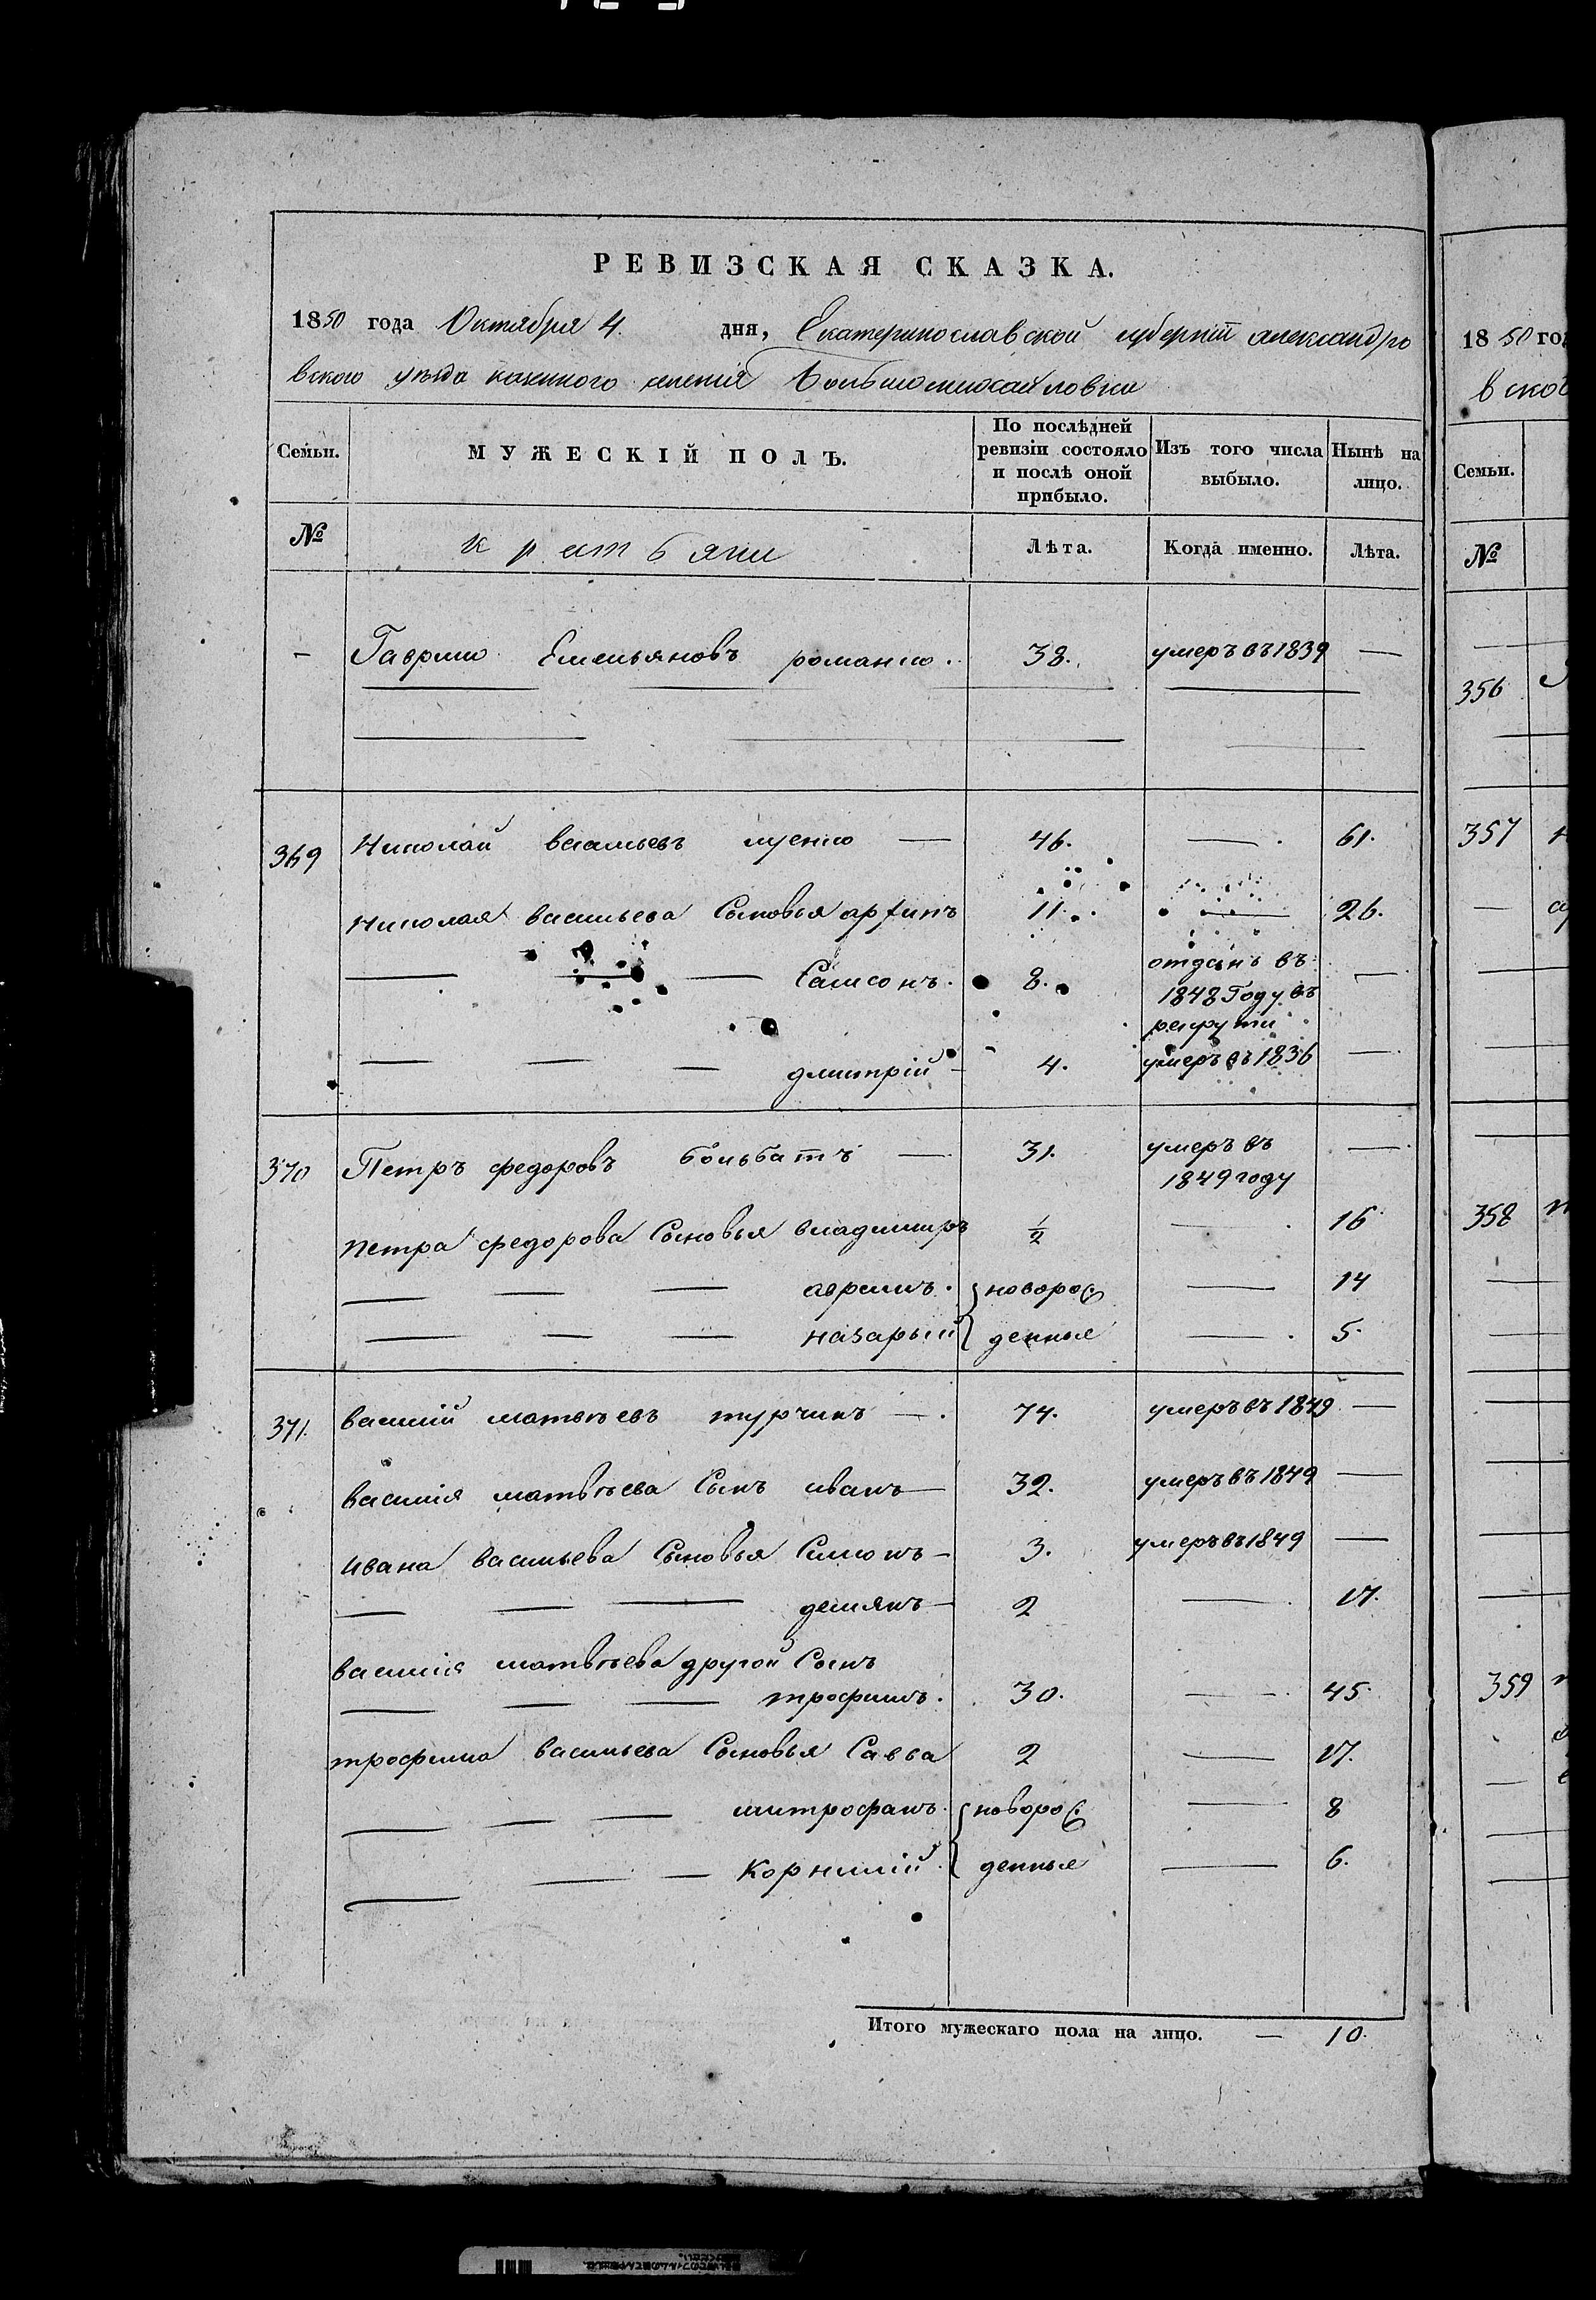 РЕВИЗСКАЯ СКАЗКА.
1850 года Октября 4. дня, Екатеринославской губерніи александро
вского уѣзда казенного селенія Большомихайловки
Семьи. МУЖЕСКІЙ ПОЛЪ. По послѣдней ревизіи состояло и послѣ оной прибыло. Изъ того числа выбыло. Нынѣ на лицо.
№ крестьяни Лѣта. Когда именно. Лѣта.
– Гаврило Емельяновъ романко 38. умеръ въ 1839 —
369 Николай васильевъ луенко — 46. — 61.
Николая васильева Сыновья архипъ 11. — 26.
— — — Самсонъ. 8. отданъ въ 1848 Году въ рекруты —
— — — дмитрій 4. умеръ въ 1836 —
370 Петръ федоровъ больбатъ — 31. умеръ въ 1849 году —
петра федорова Сыновья владимиръ 1/2 — 16
— — — аврамъ. новорож — 14
— — — назарый денные — 5.
371. василій матвѣевъ турчинъ — 74. умеръ въ 1849 —
василія матвѣева Сынъ иванъ 32. умеръ въ 1849 —
ивана васильева Сыновья Симонъ 3. умеръ въ 1849 —
— — — демянъ 2 — 17.
василія матвѣева другой Сынъ
— — — трофимъ. 30. — 45.
трофима васильева Сыновья Савва 2 — 17.
— — — митрофанъ. новорож — 8
— — — Корнилій денные — 6.
Итого мужескаго пола на лицо. — 10.
1850 год
вског
Семьи.
№
356
357
358
359